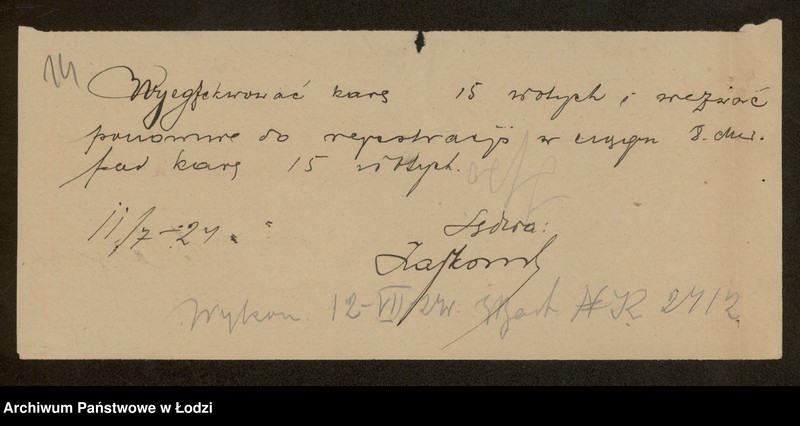 14
Wyegzekwować karę 15 złotych i wezwać
ponownie do rejestracji w ciągu 8. dni.
pod karę 15 złotych.
11/7-24
Sędzia:
Wykon. 12-VII 24r. № R 2412
Archiwum Państwowe w Łodzi